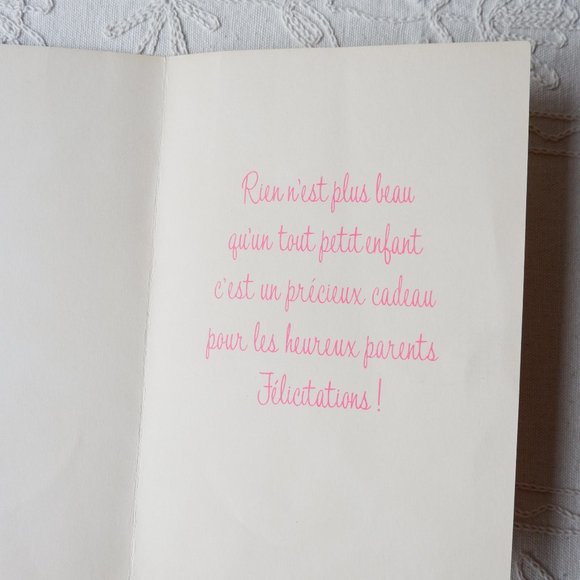 Rien n'est plus beau
qu'un tout petit enfant
c'est un précieux cadeau
pour les heureux parents
Félicitations !